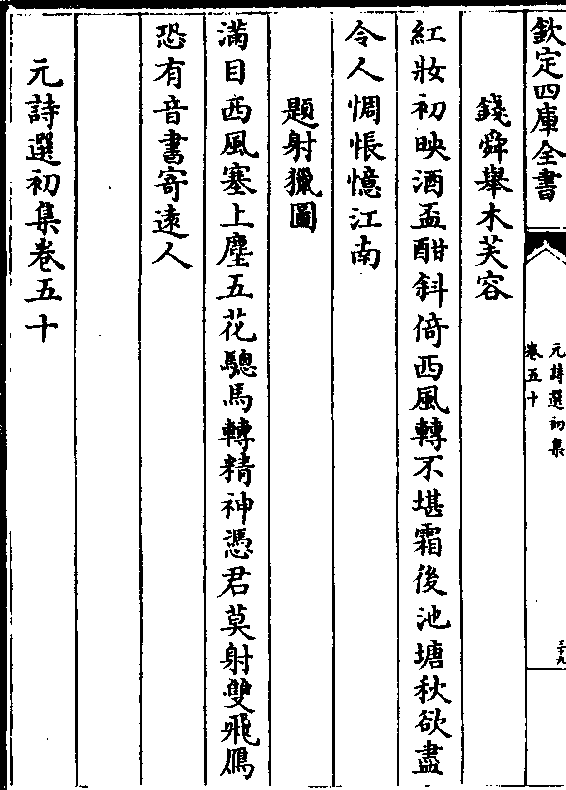 欽定四庫全書
元詩選初集
卷五十
三十九
錢舜舉木芙容
紅妝初映酒盃酣斜倚西風轉不堪霜後池塘秋欲盡
令人惆悵憶江南
題射獵圖
滿目西風塞上塵五花驄馬轉精神憑君莫射雙飛鴈
恐有音書寄遠人
元詩選初集卷五十